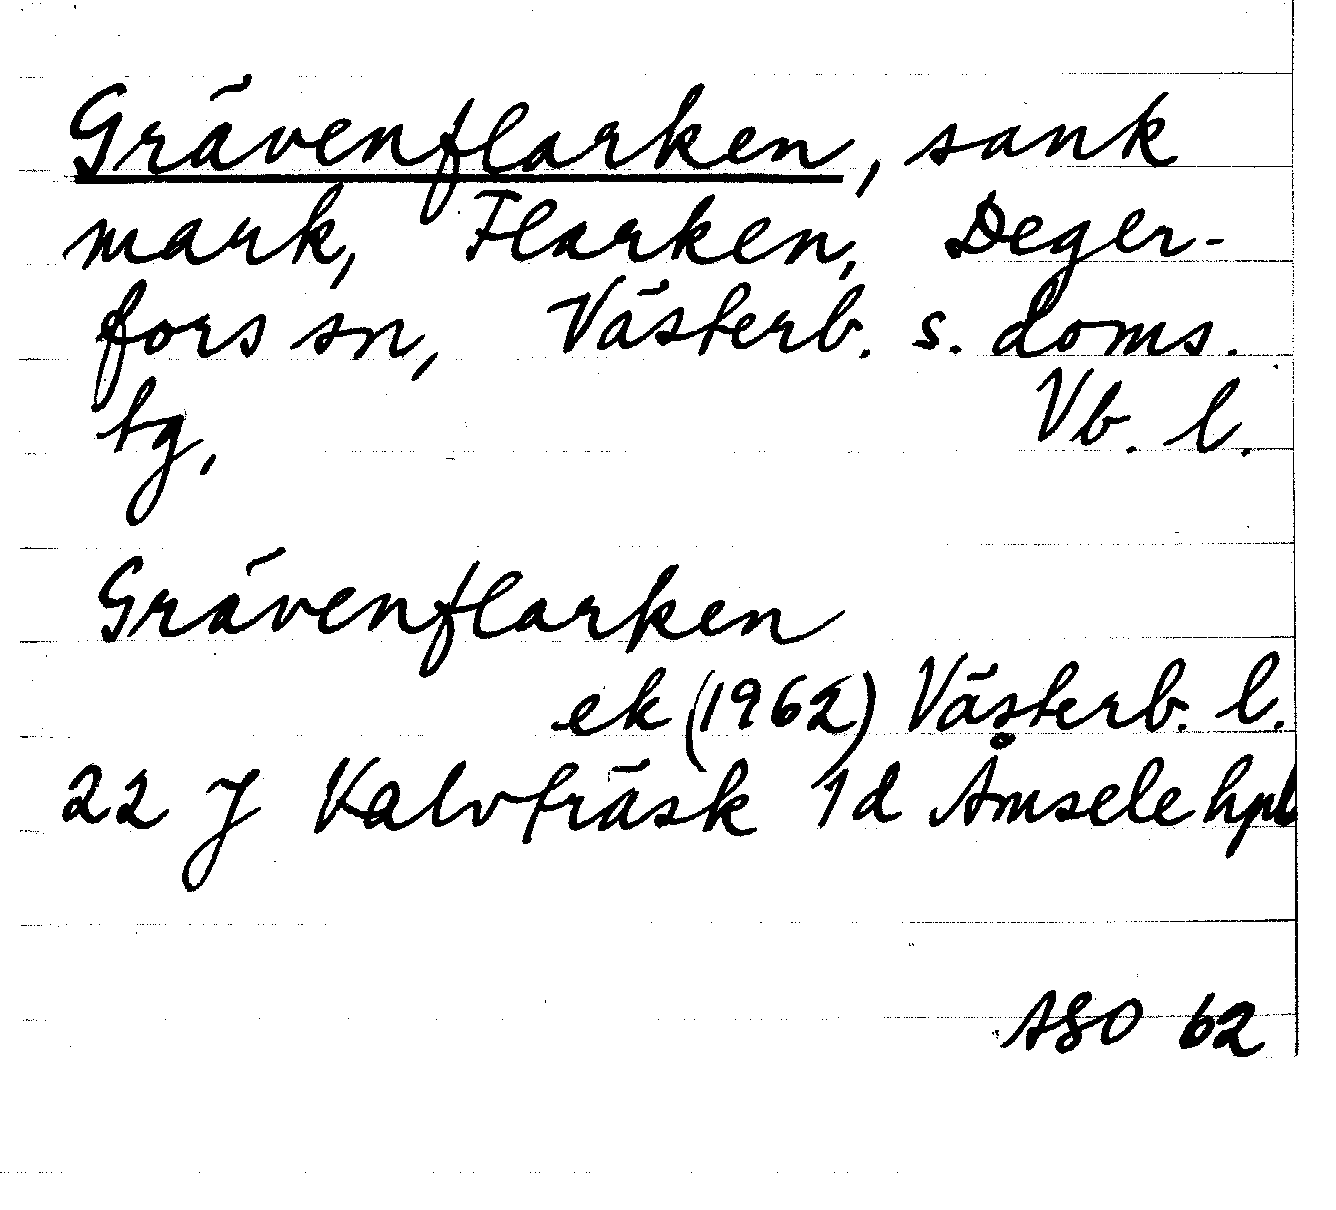 Grävenflarken, sank
mark, Flarken, Deger-
fors sn, Västerb. s. doms.
tg, Vb. l.
Grävenflarken
ek (1962) Västerb. l.
22 J Kalvträsk 1d Åmsele hpl
ASO 62